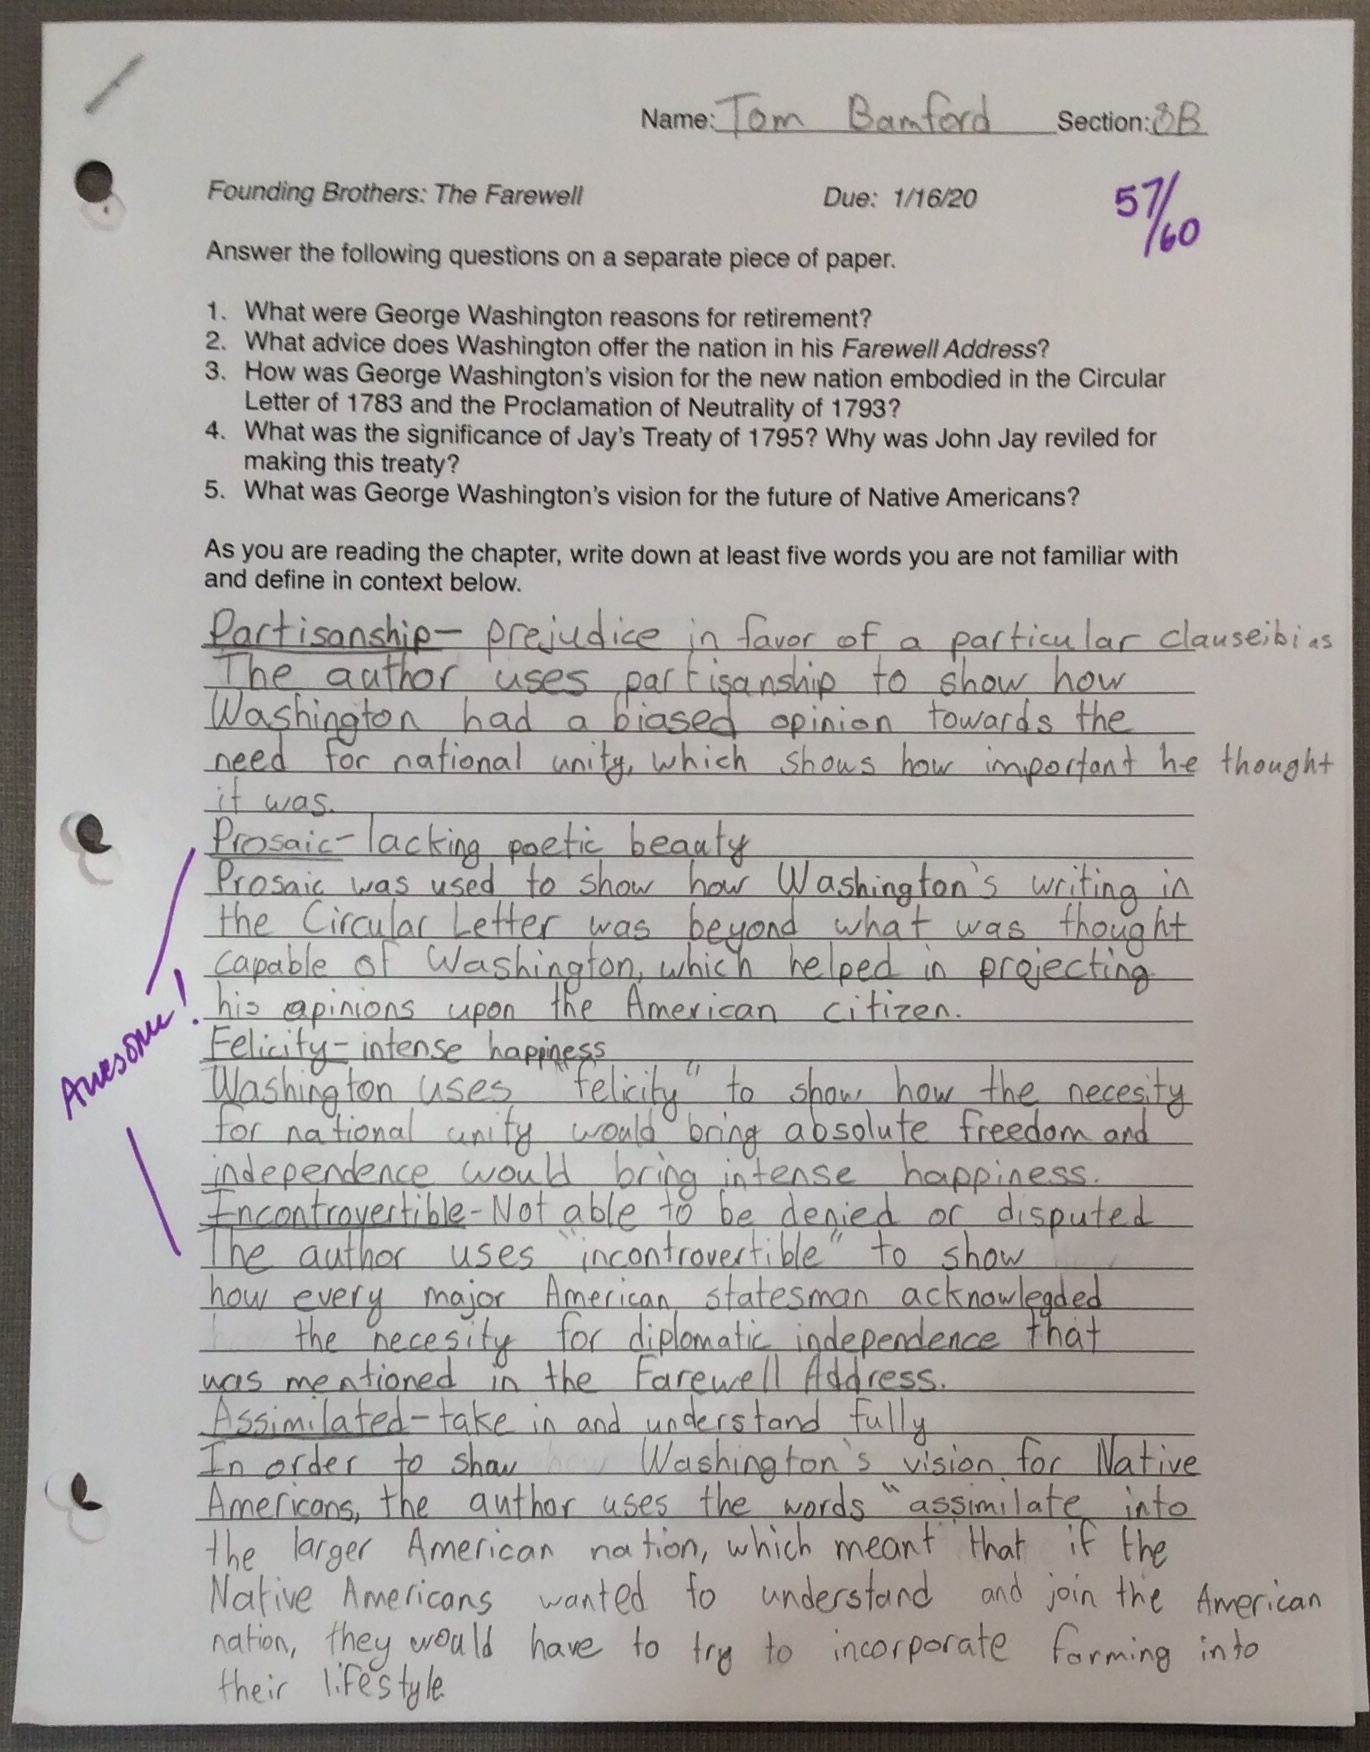 Name: Tom Bamford Section: 8B
Founding Brothers: The Farewell Due: 1/16/20
57/60
Answer the following questions on a separate piece of paper.
1. What were George Washington reasons for retirement?
2. What advice does Washington offer the nation in his Farewell Address?
3. How was George Washington's vision for the new nation embodied in the Circular
Letter of 1783 and the Proclamation of Neutrality of 1793?
4. What was the significance of Jay's Treaty of 1795? Why was John Jay reviled for
making this treaty?
5. What was George Washington's vision for the future of Native Americans?
As you are reading the chapter, write down at least five words you are not familiar with
and define in context below.
Partisanship- prejudice in favor of a particular clause;bias
The author uses partisanship to show how
Washington had a biased opinion towards the
need for national unity, which shows how important he thought
it was.
Prosaic- lacking poetic beauty
Prosaic was used to show how Washington's writing in
the Circular Letter was beyond what was thought
capable of Washington, which helped in projecting
his opinions upon the American citizen.
Awesome!
Felicity- intense happiness
Washington uses "felicity" to show how the necesity
for national unity would bring absolute freedom and
independence would bring intense happiness.
Incontrovertible- Not able to be denied or disputed
The author uses "incontrovertible" to show
how every major American statesman acknowlegded
the necesity for diplomatic independence that
was mentioned in the Farewell Address.
Assimilated- take in and understand fully
In order to show Washington's vision for Native
Americans, the author uses the words "assimilate into
the larger American nation, which meant" that if the
Native Americans wanted to understand and join the American
nation, they would have to try to incorporate farming into
their lifestyle.